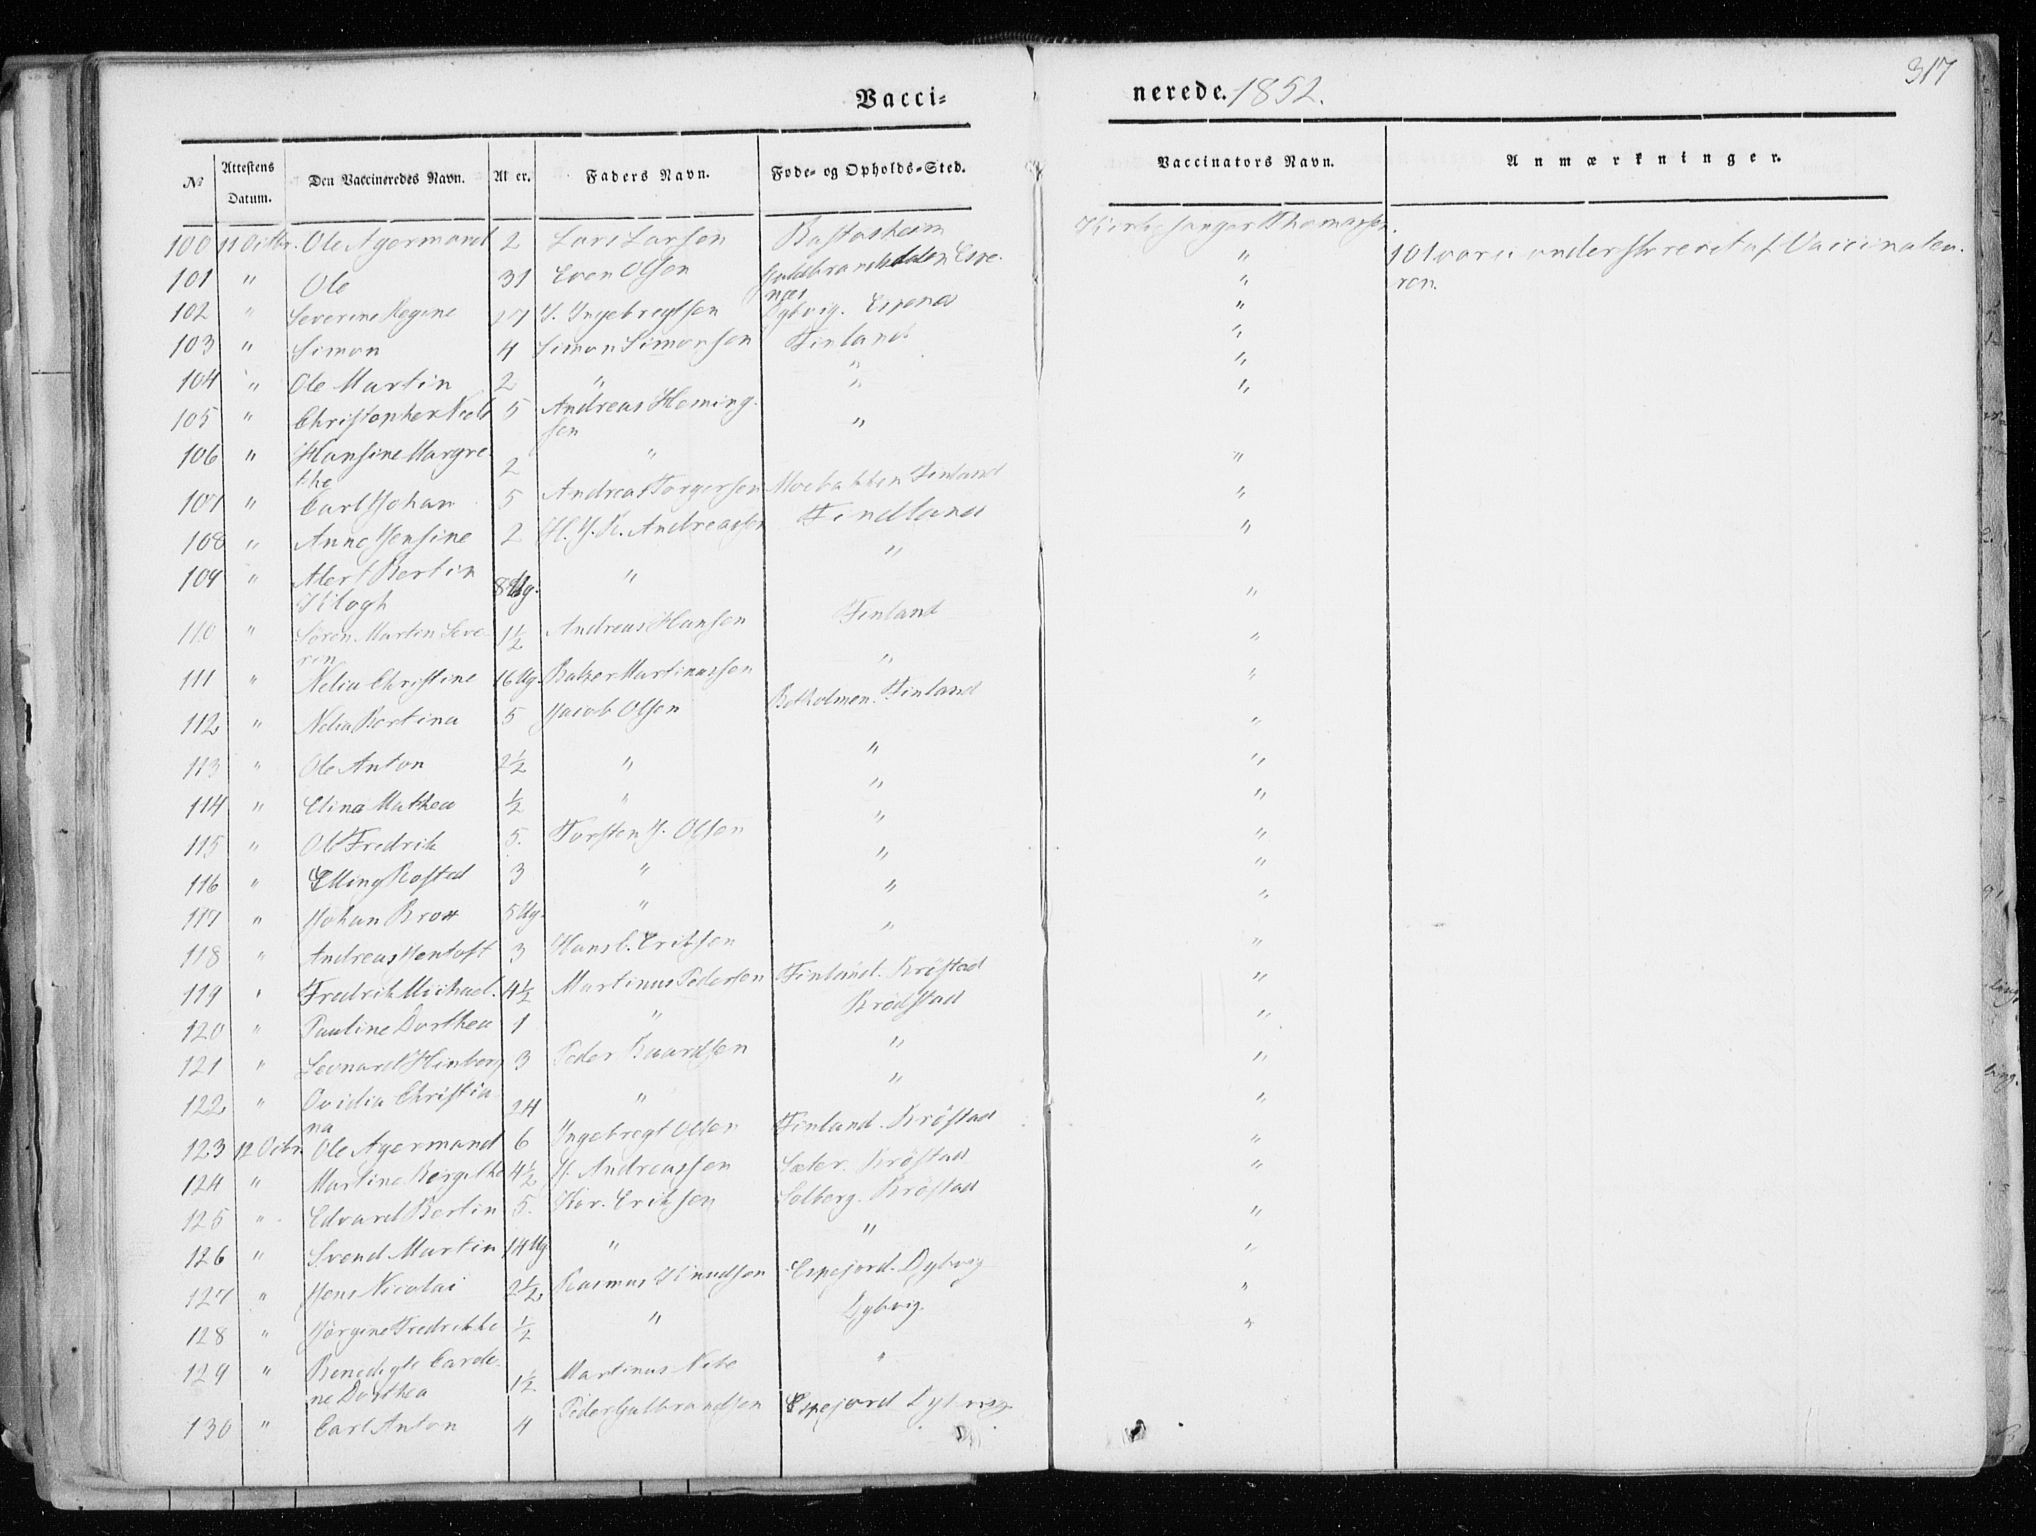 317
Vacci= nerede. 1852.
№ Attestens Datum. Den Vaccineredes Navn. Al er. Faders Navn. Føde- og Opholds-Sted. Vaccinators Navn. Anmærkninger.
100 11 Octbr. Ole Agermand 2 Lars Larsen Bastasheim Kirkesanger Thomassen.
101 " Ole 31 Even Olsen Espe- " 101 var under af Vaccinateu-
næs ren.
102 " Severine Regine 17 J. Ingebregtsen Dybvig. Espenæs "
103 " Simon 4 Simon Simonsen Finland "
104 " Ole Martin 2 " " "
105 " Christopher 5 Andreas Heming- " "
sen
106 " Hansine Margre- 2 " " "
the
107 " Carl Johan 5 Andreas Torgersen Moebakken Finland "
108 " Anne Jensine 2 H. J. K. Andreassen Findland "
109 " Alert Bertin 8 Ug. " " "
Klogh
110 " Søren Martin Seve- 1½ Andreas Hansen Finland "
rin
111 " Nelia Christine 16 Ug. Balzer Martinussen " "
112 " Nelia Bertina 5 Jacob Olsen Finland "
113 " Ole Anton 2½ " " "
114 " Elina Mathea ½ " " "
115 " Ole Fredrik 5. Torsten J. Olsen " "
116 " Elling Rosted 3 " " "
117 " Johan Brox 5 Ug. " " "
118 " Andreas Jentoft 3 Hans C. Eriksen " "
119 " Fredrik Michael. 4½ Martinus Pedersen Finland. Brøstad "
120 " Pauline Dorthea 1 " Brødstad "
121 " Leonard Hinberg 3 Peder Baardsen " "
122 " Ovidia Christia- 24 " " "
na
123 12 Octbr. Ole Agermand 6 Ingebregt Olsen Finland. Brøstad "
124 " Martine Bergithe 4½ J. Andreassen Sæter. Brøstad "
125 " Edvard Bertin 5. Har. Eriksen Solberg. Brøstad "
126 " Svend Martin 14 Ug " " "
127 " Jens Nicolai 2½ Rasmus Knudsen Espejord. Dybvig "
128 " Jørgine Fredrikke ½ " Dybvig. "
129 " Benedigte Carde- 1½ Martinus "
ne Dorthea
130 " Carl Anton 4 Peder Gulbrandsen Espejord Dybvig